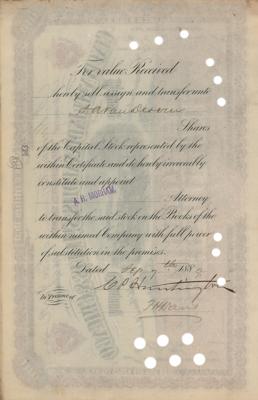 For value Received
hereby sell, assign and transfer unto
Shares
of the Capital Stock represented by the
within Certificate and do hereby irrevocably
constitute and appoint
Attorney
to transfer the said stock on the Books of the
within named Company with full power
of substitution in the premises.
Dated Sep 7th 188
C P Huntington
In Presence of